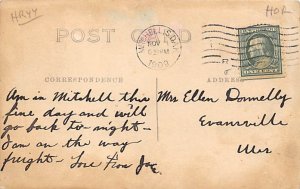 HRYY
HOR
POST CARD
MITCHELL, S.D.
NOV
1909
CORRESPONDENCE
ADDRESS
Am in Mitchell this
fine day and will
go back to-night-
I am on the way
freight- Love from Joe
Mrs Ellen Donnelly
Evansville
Wis